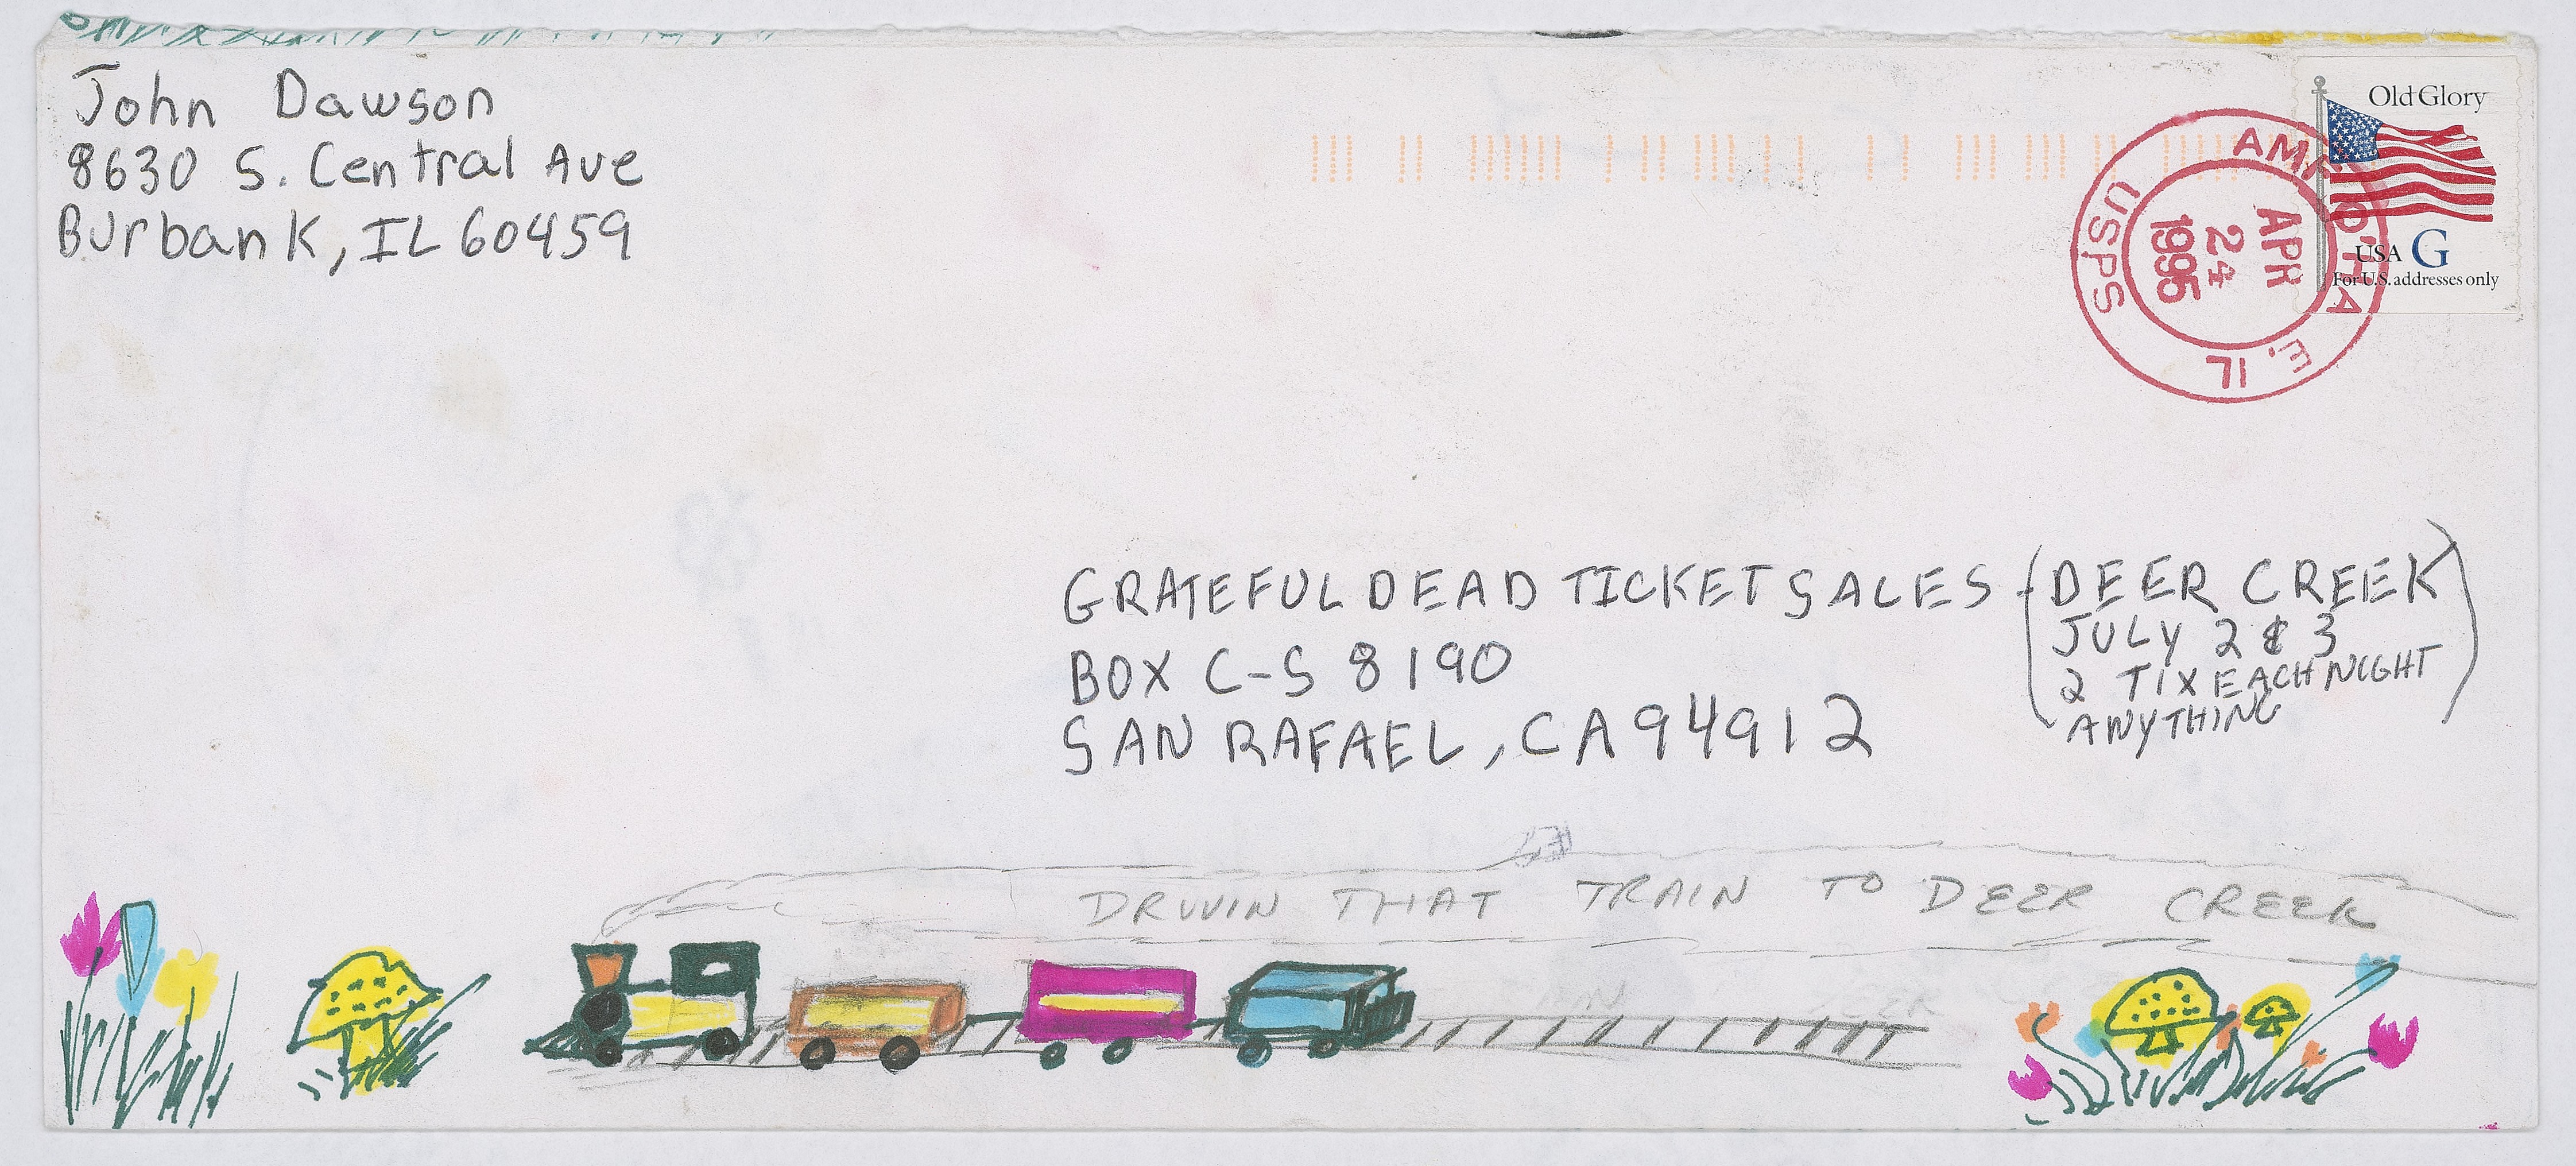 John Dawson
8630 S. Central Ave
Burbank, IL 60459
Old Glory
USA G
For U.S. addresses only
AMF O'HARE, IL
USPS
APR
24
1995
GRATEFUL DEAD TICKET SALES
BOX C-S 8190
SAN RAFAEL, CA 94912
(DEER CREEK)
JULY 2 & 3
2 TIX EACH NIGHT
ANYTHING
DRIVIN THAT TRAIN TO DEER CREEK